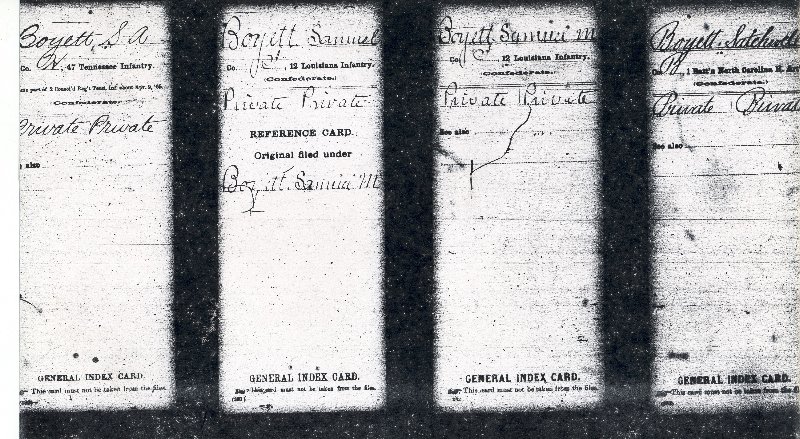 Boyett, S A
Co. H, 47 Tennessee Infantry.
Confederate.
Private Private
also
GENERAL INDEX CARD.
This card must not be taken from the files.
Boyett Samuel
Co. , 12 Louisiana Infantry.
Confederate.
Private Private
REFERENCE CARD.
Original filed under
Boyett, Samuel M
GENERAL INDEX CARD.
This card must not be taken from the files.
Boyett, Samuel M
Co. , 12 Louisiana Infantry.
Confederate.
Private Private
See also
GENERAL INDEX CARD.
This card must not be taken from the files.
Boyett,
1 Batt'n North Carolina H. Art
Confederate.
Private Private
See also
GENERAL INDEX CARD.
This card must not be taken from the f